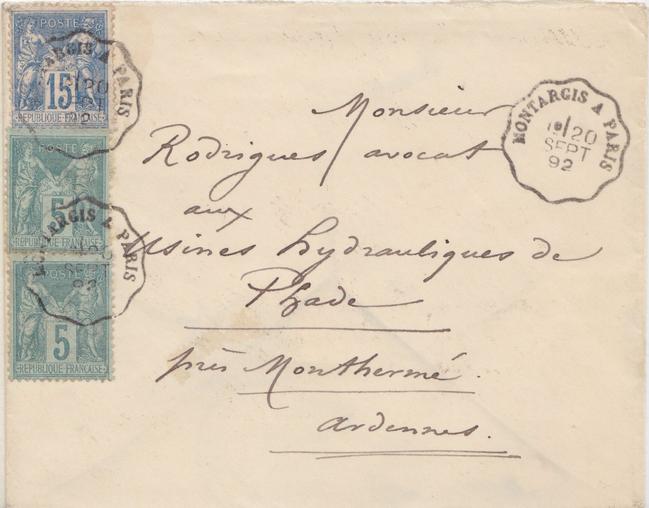 POSTE
15
REPUBLIQUE FRANÇAISE
POSTE
5
POSTE
5
REPUBLIQUE FRANÇAISE
MONTARGIS A PARIS
20
SEPT
92
MONTARGIS A PARIS
SEPT
92
MONTARGIS A PARIS
20
SEPT
92
Monsieur
Rodrigues / avocat
aux
Usines hydrauliques de
Phade
près Monthermé.
Ardennes.